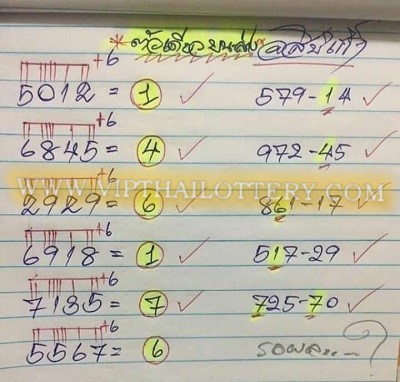 * ตัวเดียวบนล่าง
+6
5012 = 1 ✓ 579-14 ✓
+6
6845 = 4 ✓ 972-45 ✓
WWW.VIPTHAILOTTERY.COM
+6
2929 = 6 ✓ 861-17 ✓
+6
6918 = 1 ✓ 517-29 ✓
+6
7135 = 7 ✓ 725-70 ✓
+6
5567 = 6 รอผล...?